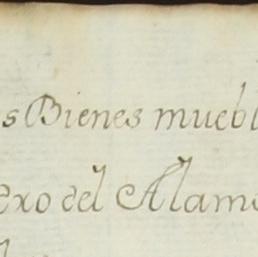 s Bienes muebl
exo del Alamo